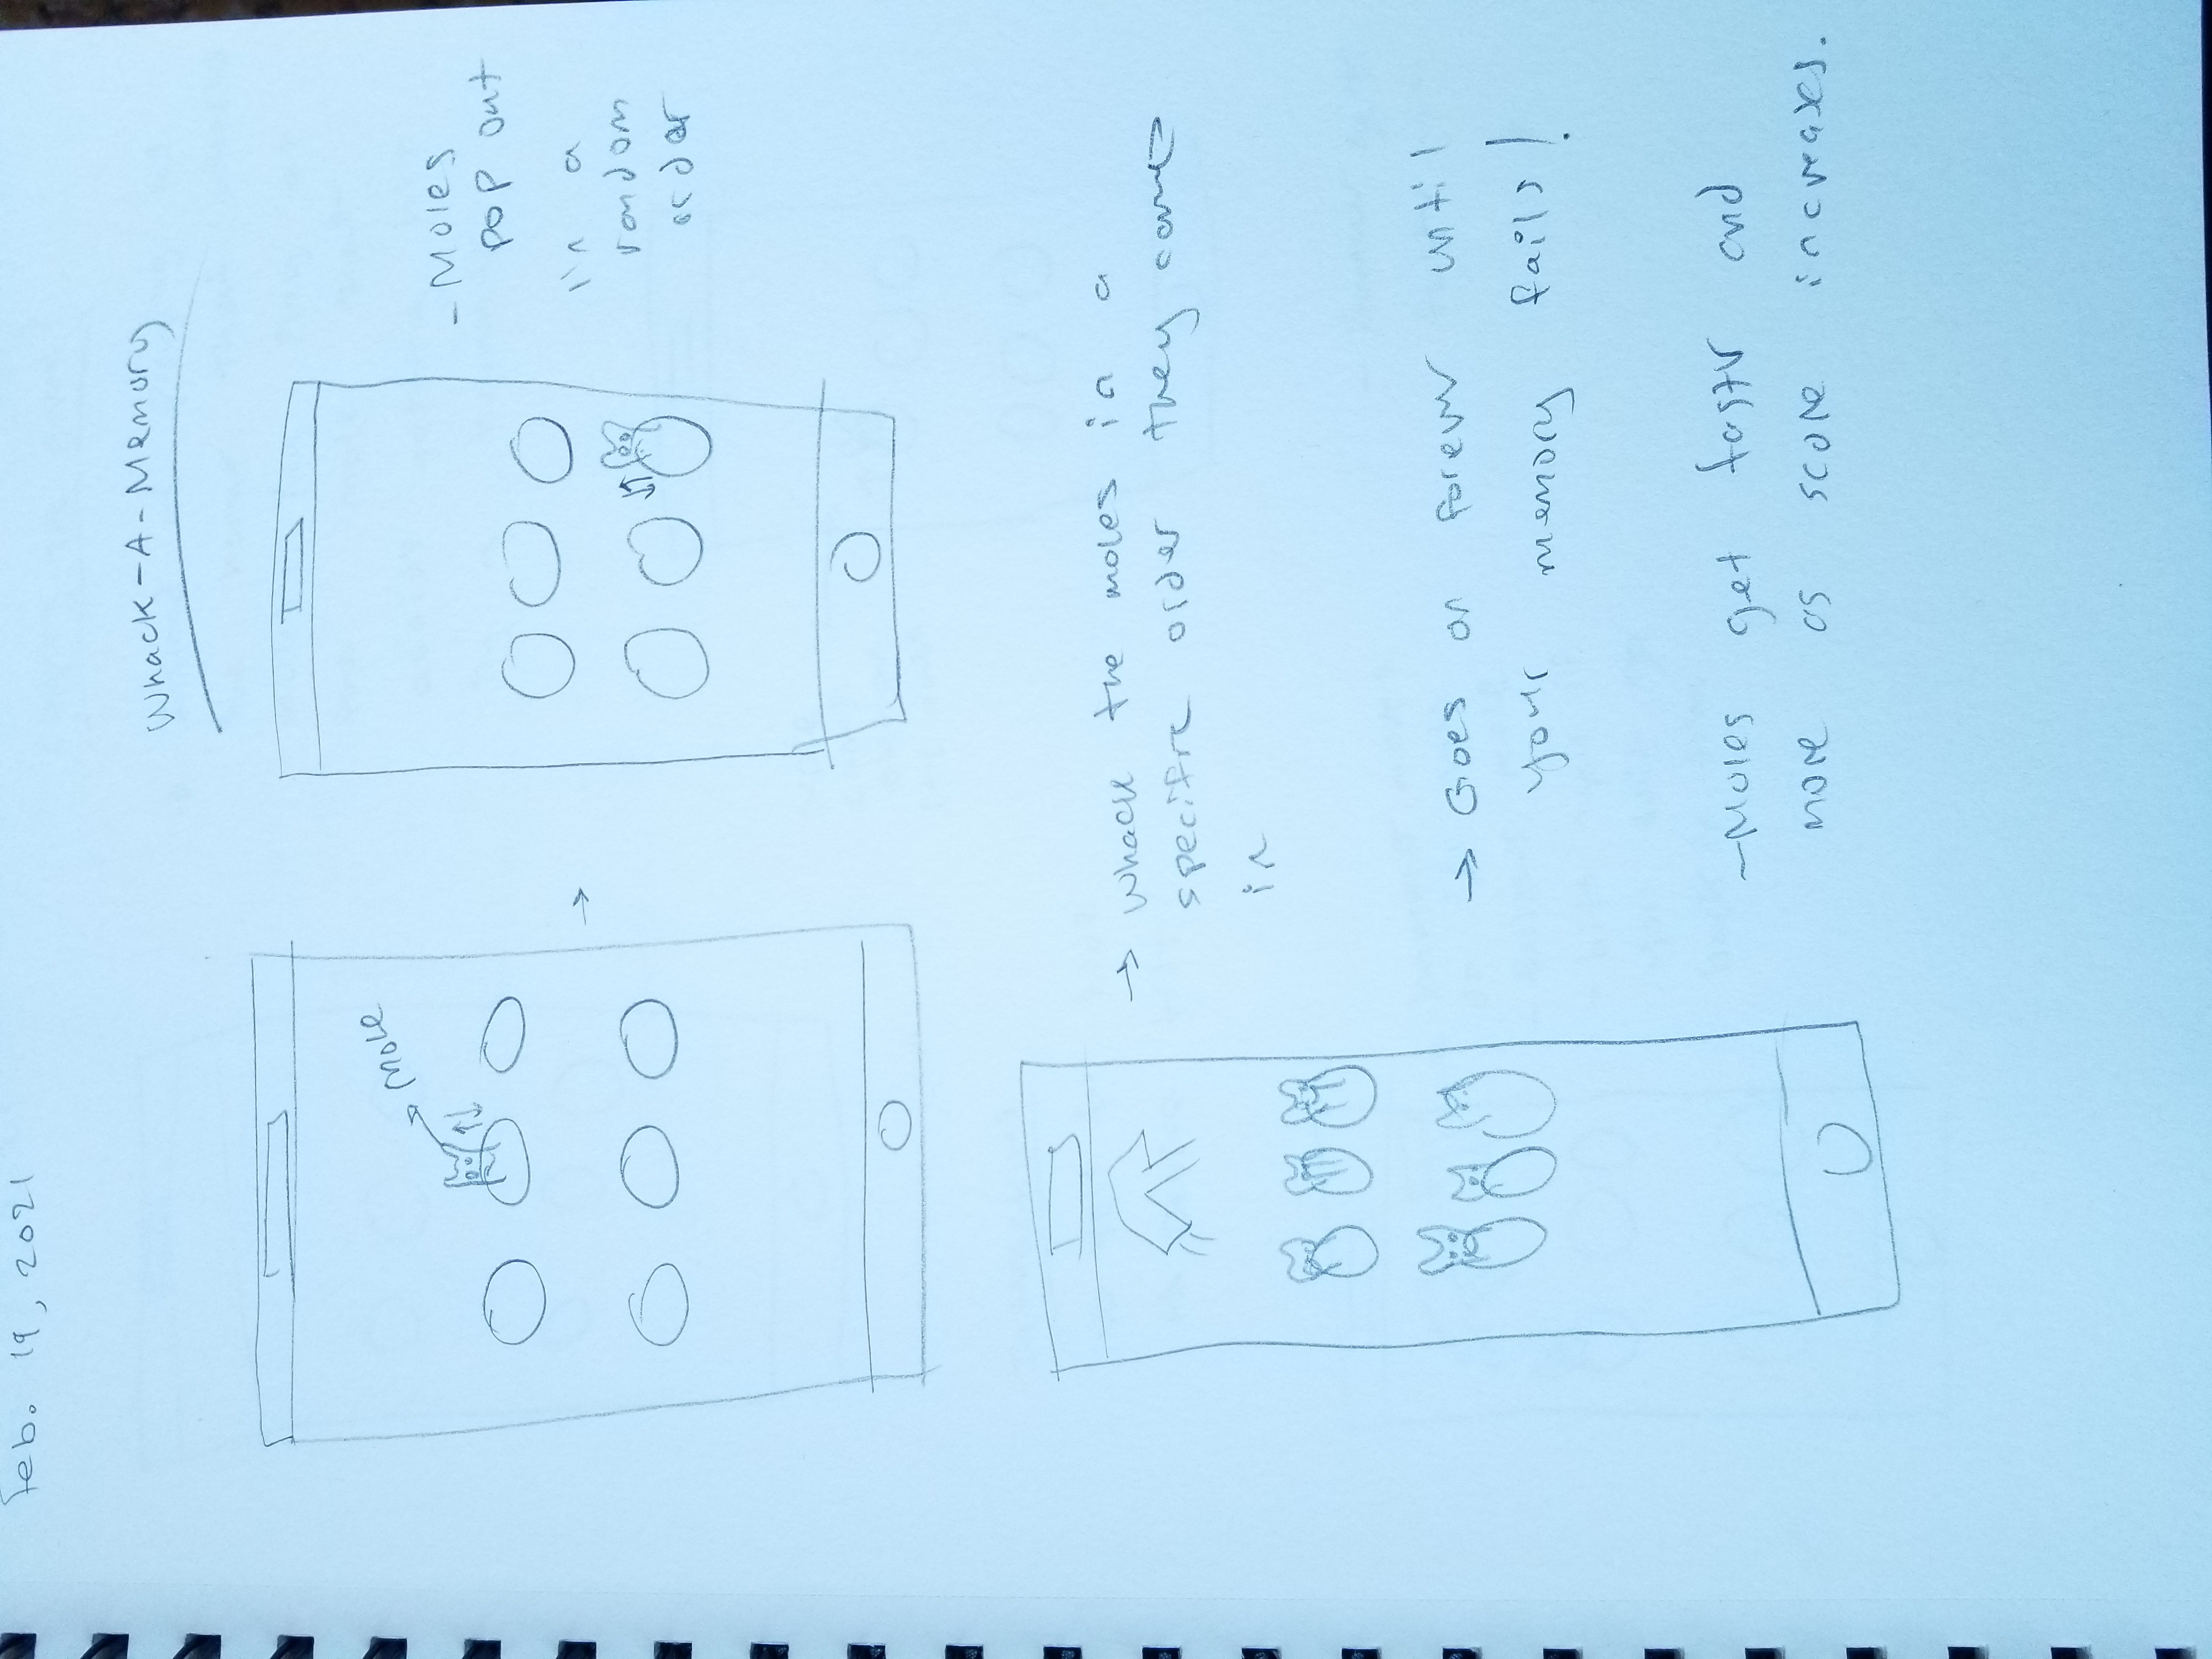 Feb. 19, 2021
Whack-A-Memory
Mole
- Moles
pop out
in a
random
order
→ Whack the moles in a
specific order they came
in
→ Goes on forever until
your memory fails!
- Moles get faster and
more as score increases.